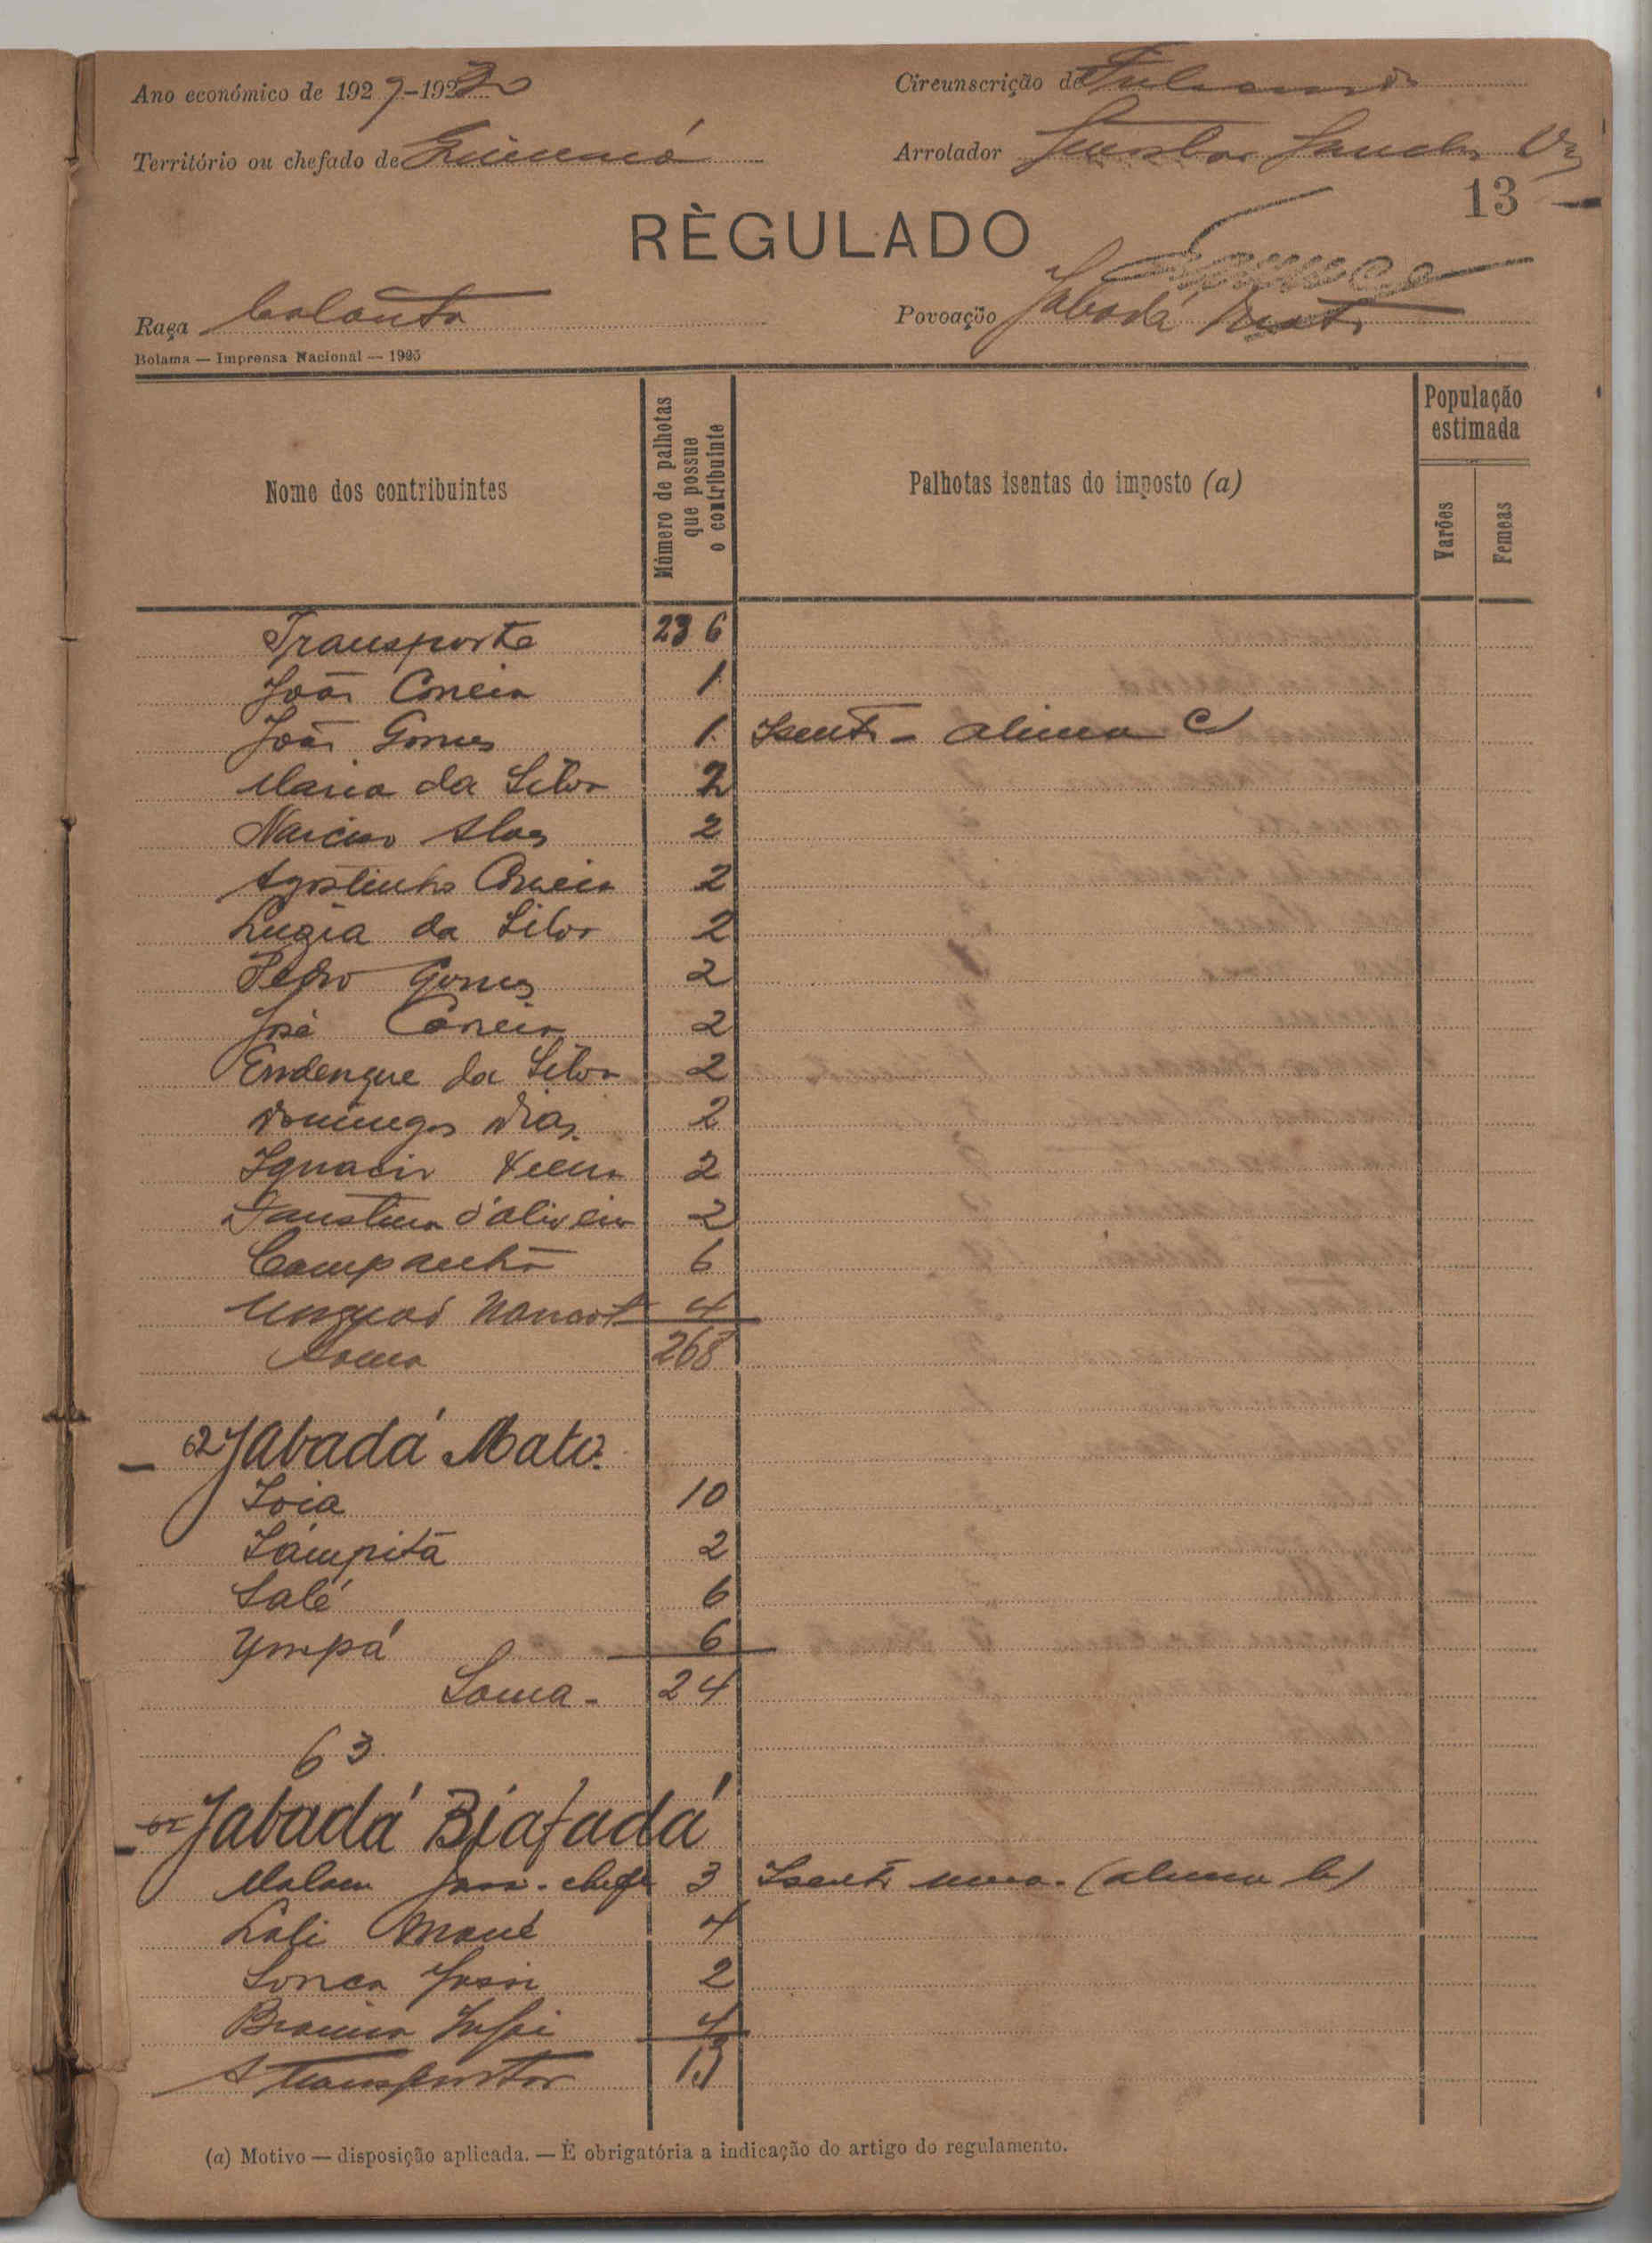 Ano económico de 1929-1930
Circunscrição de
Território ou chefado de
Arrolador
13
RÈGULADO
Raça Balanta
Povoação Jabadá
Bolama — Imprensa Nacional — 1925
Nome dos contribuintes
Número de palhotas que possue o contribuinte
Palhotas isentas do imposto (a)
População estimada
Varões
Femeas
Transporte 236
João Correia 1
João Gomes 1 Isento - alinea C
Maria da Silva 2
Narciso Alves 2
Agostinho Correia 2
Luzia da Silva 2
Pedro Gomes 2
José Correia 2
Endengue da Silva 2
Domingos Dias 2
Ignacio Vieira 2
Faustina d'Oliveira 2
Companhã 6
4
Soma 268
62 Jabadá Mato.
Ioia 10
Lámpitã 2
Salé 6
Ympá 6
Soma - 24
63
Jabadá Biafadá
Malam - chefe 3 Isento uma. (alinea b)
Lali Mané 4
2
4
A transportar 13
(a) Motivo — disposição aplicada. — É obrigatória a indicação do artigo do regulamento.